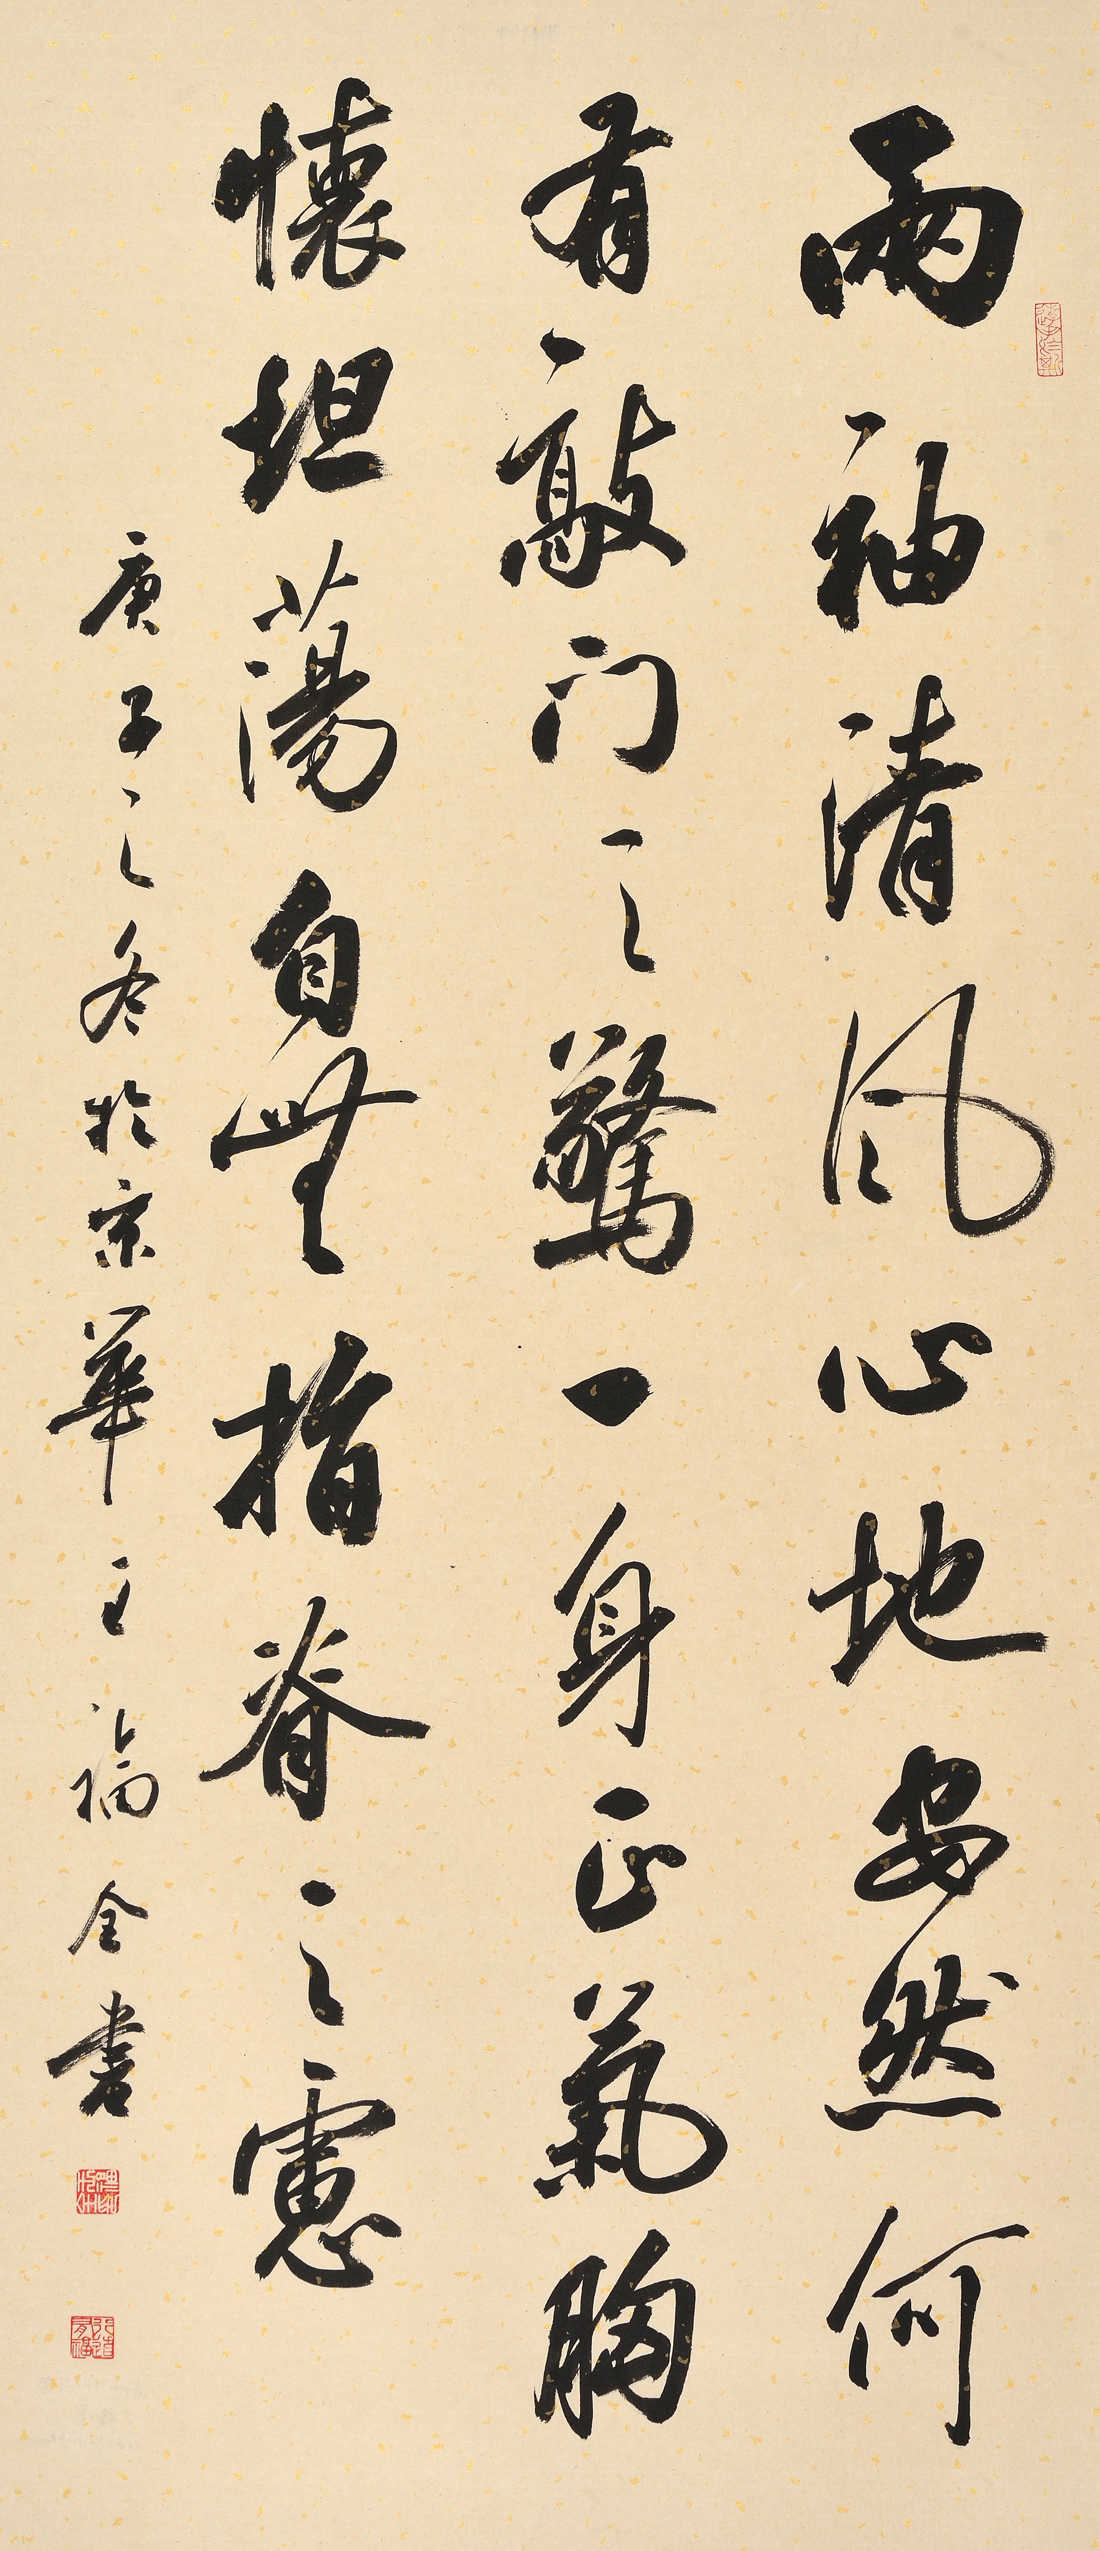 兩袖清风心地安然何
有敲门之驚一身正氣胸
懷坦蕩自無指脊之慮
庚子之冬於京華王福全書